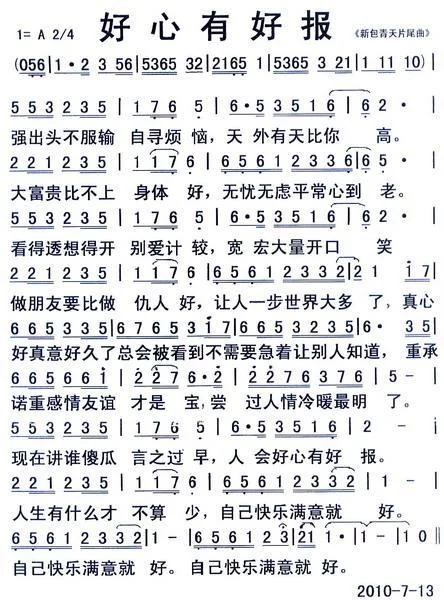 1= A 2/4 好心有好报 《新包青天片尾曲》
(056 | 1·2 3 56 | 5365 32 | 2165 23 21 | 5365 3 21 | 11 110) |
5 5 3 2 3 5 | 1 7 6 5 | 6·5 3 5 1 6 | 6 2· |
强出头不服输 自寻烦 恼,天 外有天比你 高。
2 2 1 2 3 5 | 1 1 7 6 | 6 5 6 1 2 3 3 6 | 6 5· |
大富贵比不上 身体 好,无忧无虑平常心到 老。
5 5 3 2 3 5 | 1 7 6 5 | 6·5 3 5 1 6 | 6 2· |
看得透想得开 别爱计 较,宽 宏大量开口 笑
2 2 1 2 3 5 | 1 1 7 6 | 6 5 6 1 2 3 3 2 | 2 1 17 |
做朋友要比做 仇人 好,让人一步世界大多 了,真心
6 6 5 3 3 5 | 6 7 6 5 3 1 7 | 6 6 5 3 2 3 5 | 6· 3 5 |
好真意好久了总会被看到不需要急着让别人知道,重承
6 6 5 6 6 1 | 2 2 7 6·2 | 2 2 7 6 3 7 6 | 5 - |
诺重感情友谊 才是 宝,尝 过人情冷暖最明 了。
5 5 3 2 3 5 | 1 7 6 5 | 6·5 3 5 1 6 | 2 - |
现在讲谁傻瓜 言之过 早,人 会好心有好 报。
2 2 1 2 3 5 | 1 1 7 6 | 6 5 6 1 2 3 3 2 | 1 - |
人生有什么才 不算 少,自己快乐满意就 好。
6 5 6 1 2 3 3 2 | 1 - | 6 5 6 1 2 3 | 2 1 1· | 1 - | 1 0 ‖
自己快乐满意就 好。自己快乐满意就 好。
2010-7-13